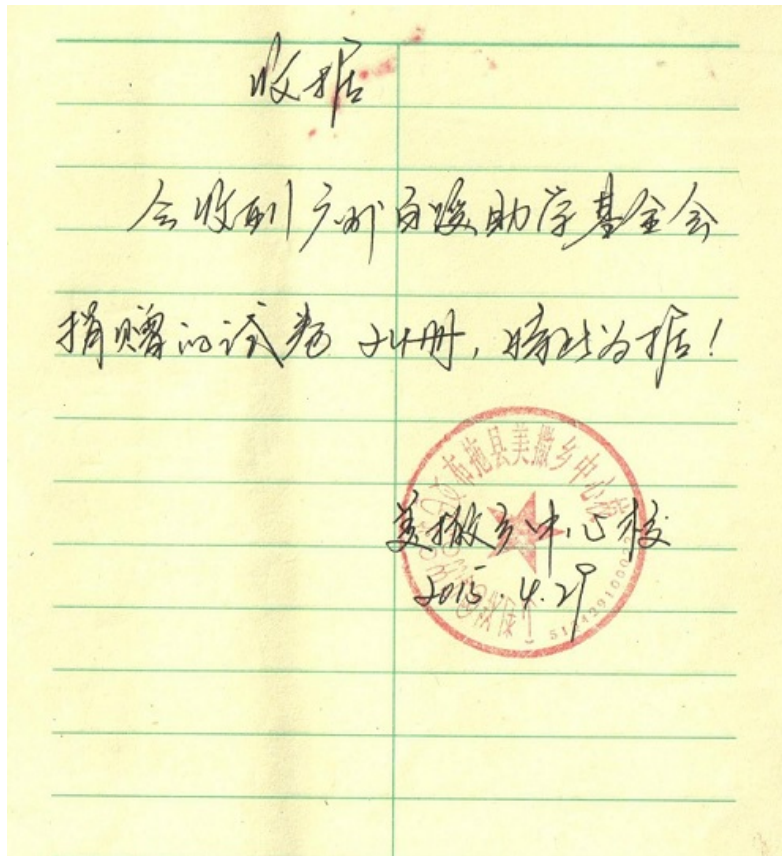 收据
今收到广州助学基金会
捐赠的试卷24册,特此为据!
布拖县美撒乡中心校
美撒乡中心校
2015.4.29